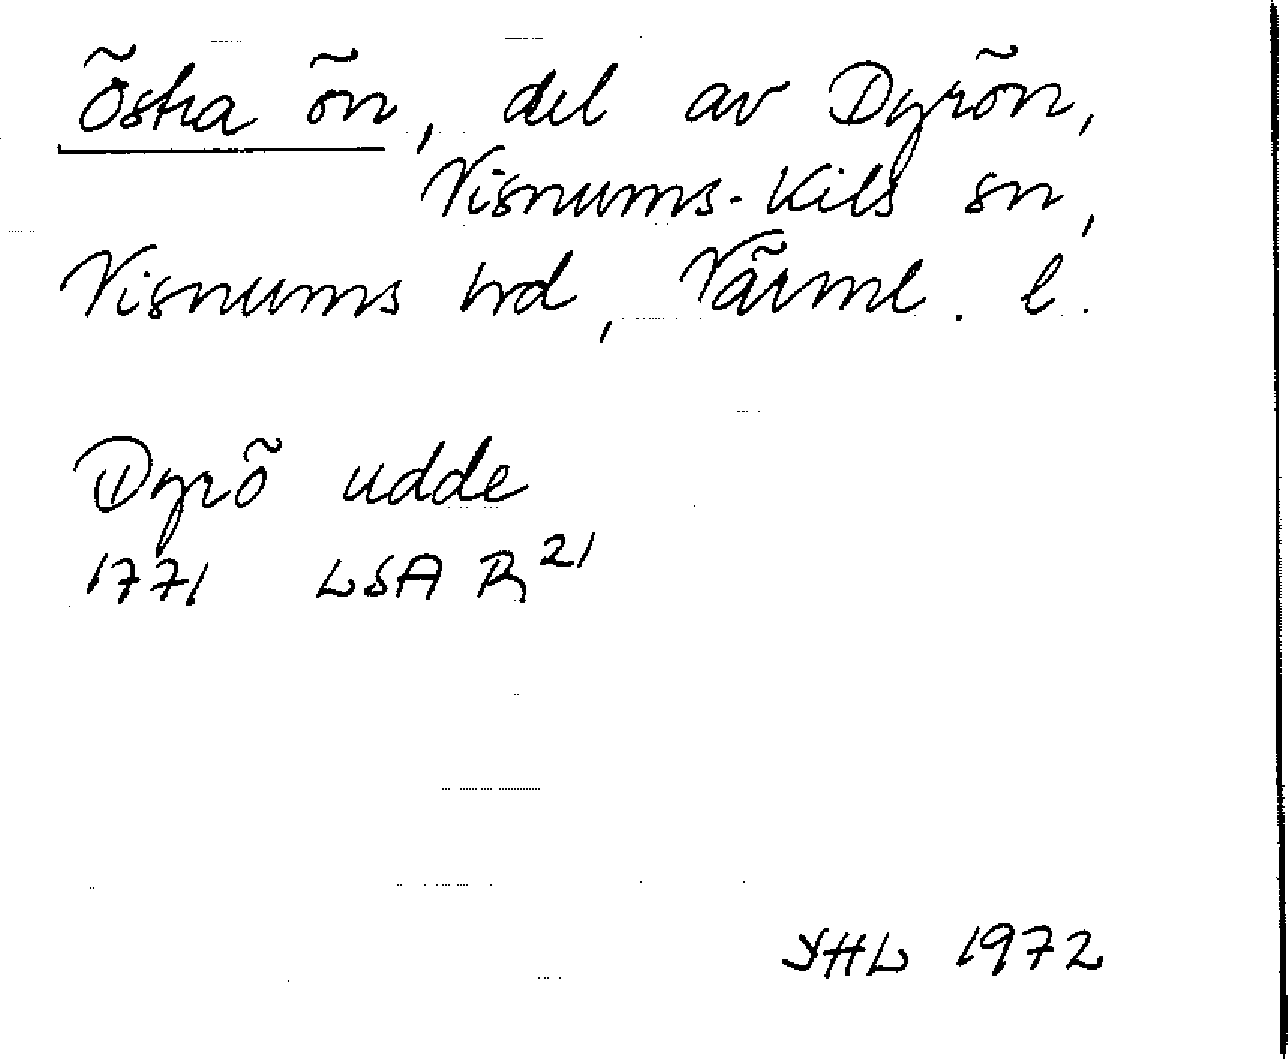 Östra ön, del av Dyrön,
Visnums-Kils sn,
Visnums hd, Värml. l.
Dyrö udde
1771 LSA R 21
YHL 1972